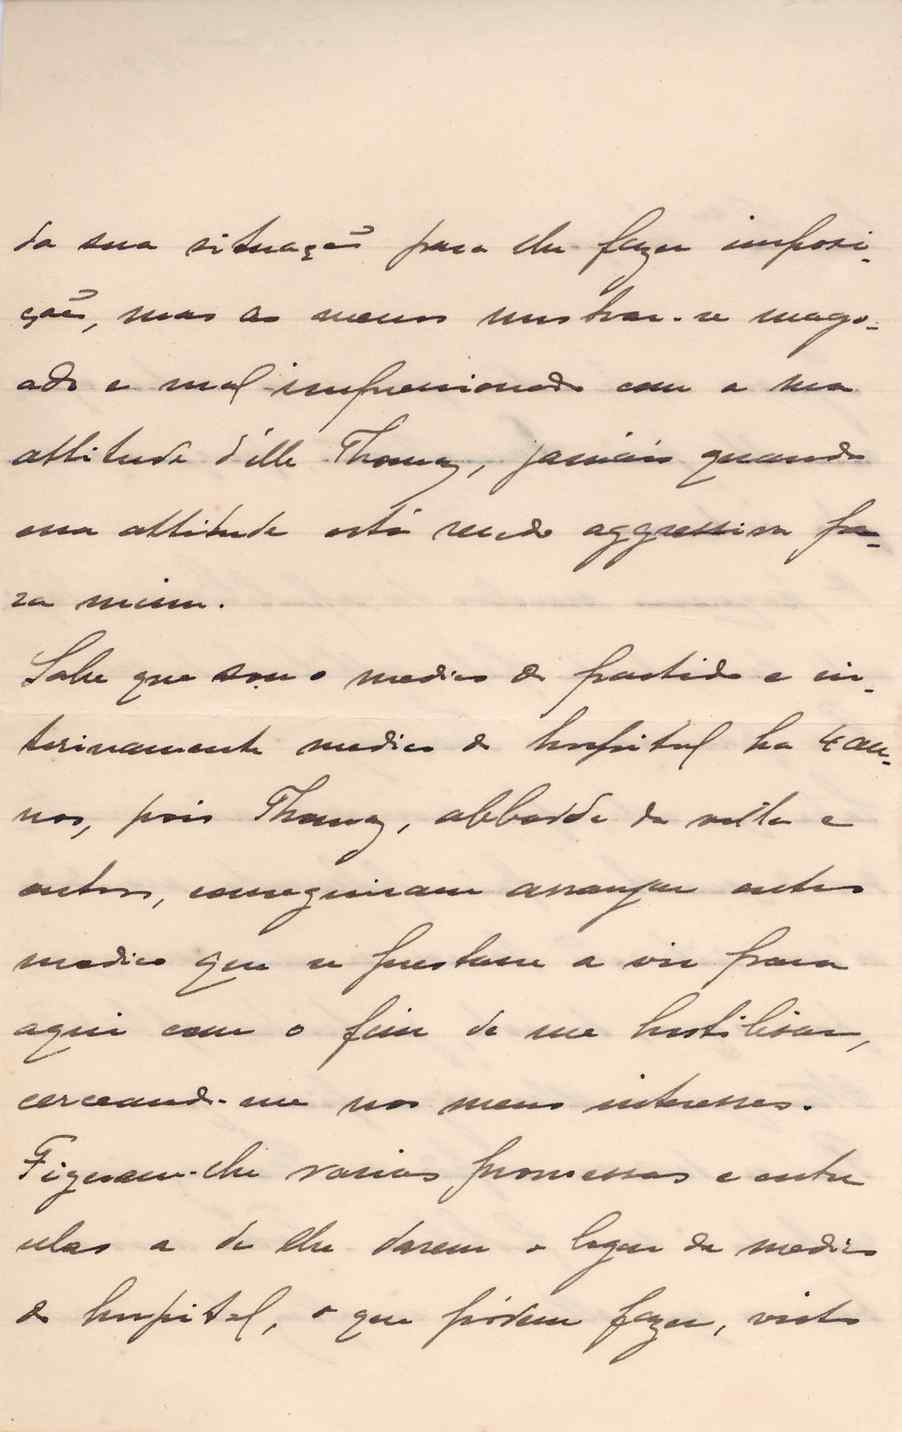 da sua situação para lhe fazer imposi-
ções, mas ao menos mostrar-se mago-
ado e mal impressionado com a sua
attitude d'elle Thomaz, jamais quando
essa attitude está sendo aggressiva pa-
ra mim.
Sabe que sou o medico do partido e in-
terinamente medico do hospital ha 4 an-
nos, pois Thomaz, abbade da villa e
outros, conseguiram arranjar outro
medico que se prestasse a vir para
aqui com o fim de me hostilisar,
cerceando-me nos meus interesses.
Fizeram-lhe varias promessas e entre
ellas a de lhe darem o logar de medico
do hospital, o que pódem fazer, visto